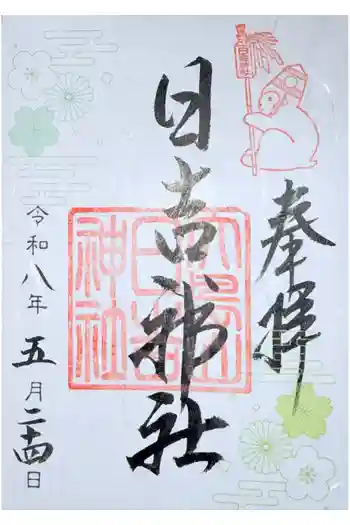 奉拝
日吉神社
令和八年五月二十四日